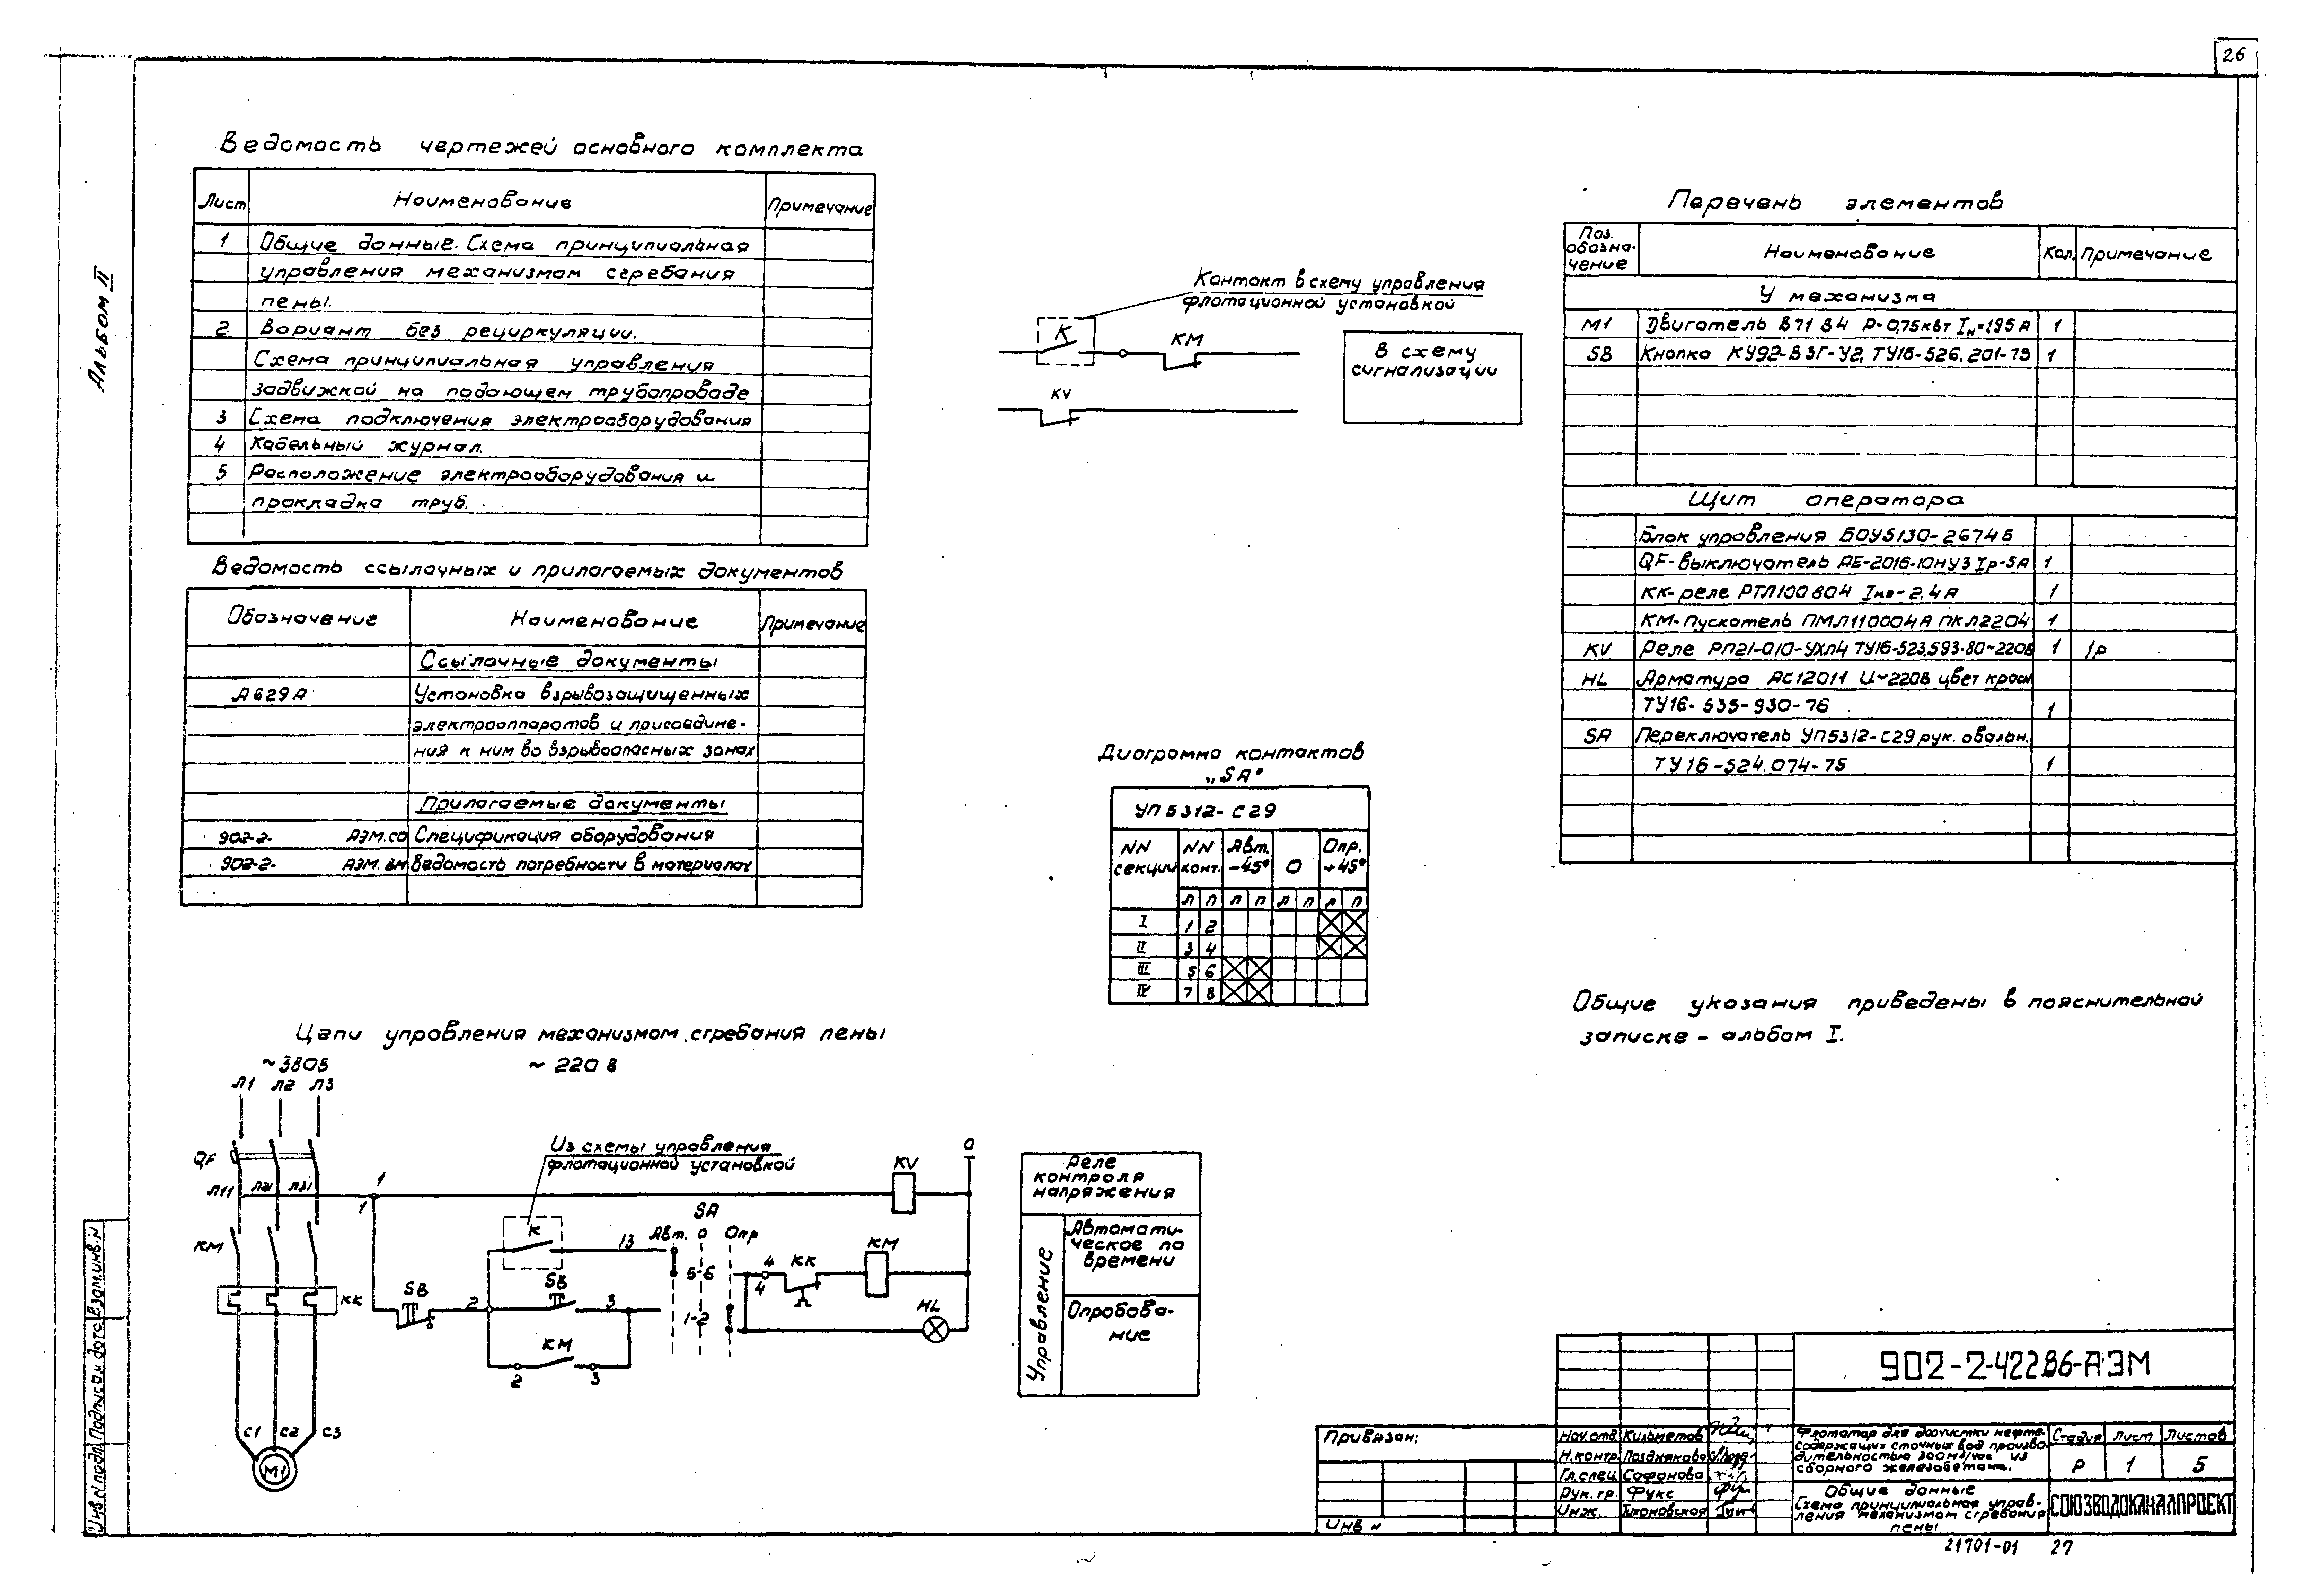 26
Альбом II
Ведомость чертежей основного комплекта
Лист Наименование Примечание
1 Общие данные. Схема принципиальная
управления механизмом сгребания
пены.
2 Вариант без рециркуляции.
Схема принципиальная управления
задвижкой на подающем трубопроводе
3 Схема подключения электрооборудования
4 Кабельный журнал.
5 Расположение электрооборудования и
прокладка труб.
Ведомость ссылочных и прилагаемых документов
Обозначение Наименование Примечание
Ссылочные документы
А629А Установка взрывозащищенных
электроаппаратов и присоедине-
ния к ним во взрывоопасных зонах
Прилагаемые документы
902-2- АЭМ.СО Спецификация оборудования
902-2- АЭМ.ВМ Ведомость потребности в материалах
Контакт в схему управления
флотационной установкой
К
КМ
KV
В схему
сигнализации
Диаграмма контактов
„SA"
УП5312-С29
NN секции NN конт. Авт. -45° 0 Опр. +45°
Л П Л П Л П Л П
I 1 2
II 3 4
III 5 6
IV 7 8
Перечень элементов
Поз. обозна-чение Наименование Кол. Примечание
У механизма
М1 Двигатель В71В4 Р-0,75кВт Iн=1,95А 1
SB Кнопка КУ92-ВЗГ-У2, ТУ16-526.201-75 1
Щит оператора
Блок управления БОУ5130-2674Б
QF-выключатель АЕ-2016-10НУ3 Iр-5А 1
КК-реле РТЛ100804 Iно-2,4А 1
КМ-Пускатель ПМЛ110004А ПКЛ2204 1
KV Реле РП21-010-УХЛ4 ТУ16-523.593-80~220В 1 1р
HL Арматура АС12011 U~220В цвет красн
ТУ16-535-930-76 1
SA Переключатель УП5312-С29 рук. овальн.
ТУ16-524.074-75 1
Общие указания приведены в пояснительной
записке - альбом I.
Цепи управления механизмом сгребания пены
~380В ~220 В
Л1 Л2 Л3
QF
Л11 Л21 Л31
1
1
КМ
КК
С1 С2 С3
М1
Из схемы управления
флотационной установкой
К
13
SA
Авт. 0 Опр
5-6
1-2
SB
2
SB
3
КМ
2 3
4
4
КК
КМ
HL
KV
0
Реле
контроля
напряжения
Управление
Автомати-
ческое по
времени
Опробова-
ние
Взам.инв.N
Подпись и дата
Инв.N подл.
902-2-422.86-АЭМ
Привязан:
Инв.N
Нач.отд. Кильметов
Н.контр. Позднякова
Гл.спец. Сафонова
Рук.гр. Фукс
Инж. Тихановская
Флотатор для доочистки нефте-
содержащих сточных вод произво-
дительностью 300 м3/час из
сборного железобетона.
Стадия Лист Листов
Р 1 5
Общие данные
Схема принципиальная управ-
ления механизмом сгребания
пены
СОЮЗВОДОКАНАЛПРОЕКТ
21701-01 27